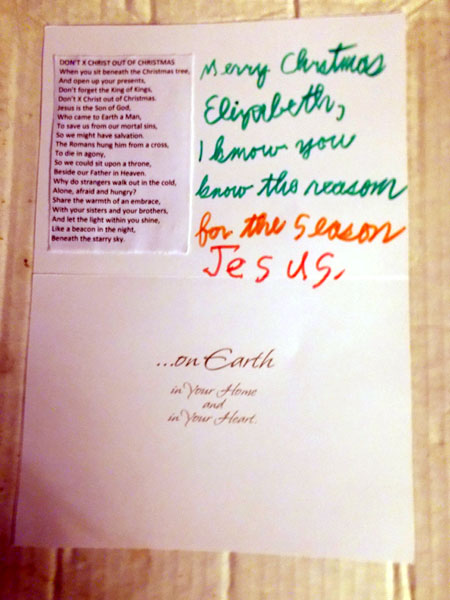 DON'T X CHRIST OUT OF CHRISTMAS
When you sit beneath the Christmas tree,
And open up your presents,
Don't forget the King of Kings,
Don't X Christ out of Christmas.
Jesus is the Son of God,
Who came to Earth a Man,
To save us from our mortal sins,
So we might have salvation.
The Romans hung him from a cross,
To die in agony,
So we could sit upon a throne,
Beside our Father in Heaven.
Why do strangers walk out in the cold,
Alone, afraid and hungry?
Share the warmth of an embrace,
With your sisters and your brothers,
And let the light within you shine,
Like a beacon in the night,
Beneath the starry sky.
Merry Christmas
Elizabeth,
I know you
know the reason
for the season
Jesus.
...on Earth
in Your Home
and
in Your Heart.